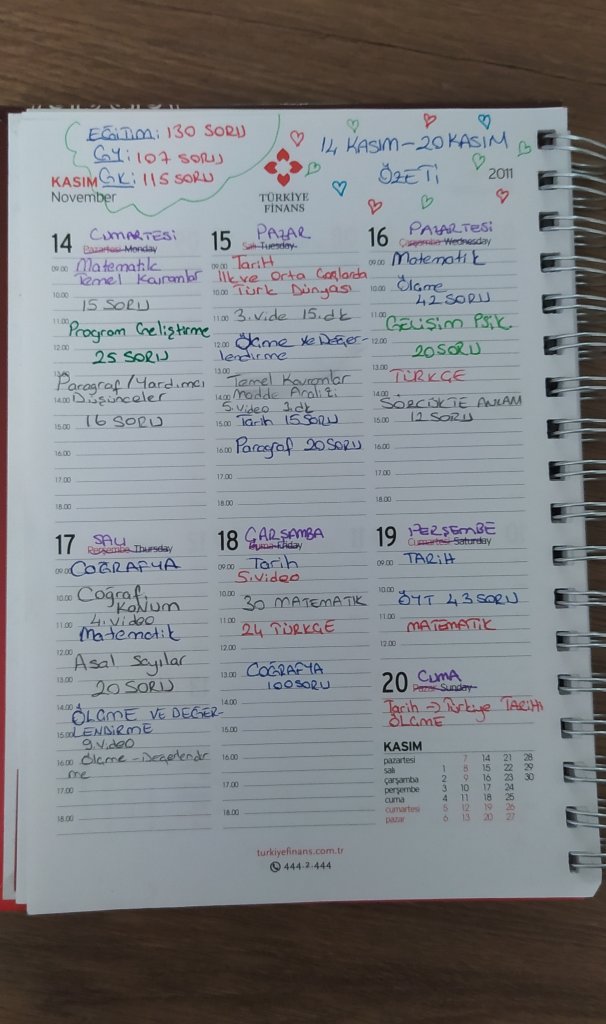 EĞİTİM: 130 SORU
GY: 107 SORU
GK: 115 SORU
KASIM
November
TÜRKİYE
FİNANS
14 KASIM-20 KASIM
ÖZETİ
2011
14 CUMARTESİ
Pazartesi Monday
09.00 Matematik
Temel Kavramlar
10.00
15 SORU
11.00
Program Geliştirme
12.00
25 SORU
13.00
Paragraf/Yardımcı
14.00 Düşünceler
15.00 16 SORU
16.00
17.00
18.00
15 PAZAR
Salı Tuesday
09.00 Tarih
İlk ve Orta Çağlarda
10.00 Türk Dünyası
11.00 3.vide 15.dk
12.00 Ölçme ve Değer-
lendirme
13.00
Temel Kavramlar
14.00 Madde Aralığı
5.video 1.dk
15.00 Tarih 15 SORU
16.00 Paragraf 20 SORU
17.00
18.00
16 PAZARTESİ
Çarşamba Wednesday
09.00 Matematik
10.00 Ölçme
42 SORU
11.00
GELİŞİM PSİK.
12.00
20 SORU
13.00
TÜRKÇE
14.00
SÖZCÜKTE ANLAM
15.00 12 SORU
16.00
17.00
18.00
17 SALI
Perşembe Thursday
09.00 COĞRAFYA
10.00 Coğraf.
Konum
11.00 4.video
Matematik
12.00
Asal Sayılar
13.00
20 SORU
14.00
ÖLÇME VE DEĞER-
15.00 LENDİRME
9.video
16.00 Ölçme-Değerlendir
me
17.00
18.00
18 ÇARŞAMBA
Cuma Friday
09.00 Tarih
5.video
10.00
30 MATEMATİK
11.00
24 TÜRKÇE
12.00
13.00 COĞRAFYA
100 SORU
14.00
15.00
16.00
17.00
18.00
19 PERŞEMBE
Cumartesi Saturday
09.00 TARİH
10.00
ÖYT 43 SORU
11.00
MATEMATİK
12.00
20 CUMA
Pazar Sunday
Tarih → Türkiye TARİHİ
ÖLÇME
KASIM
pazartesi 7 14 21 28
salı 1 8 15 22 29
çarşamba 2 9 16 23 30
perşembe 3 10 17 24
cuma 4 11 18 25
cumartesi 5 12 19 26
pazar 6 13 20 27
turkiyefinans.com.tr
444 2 444